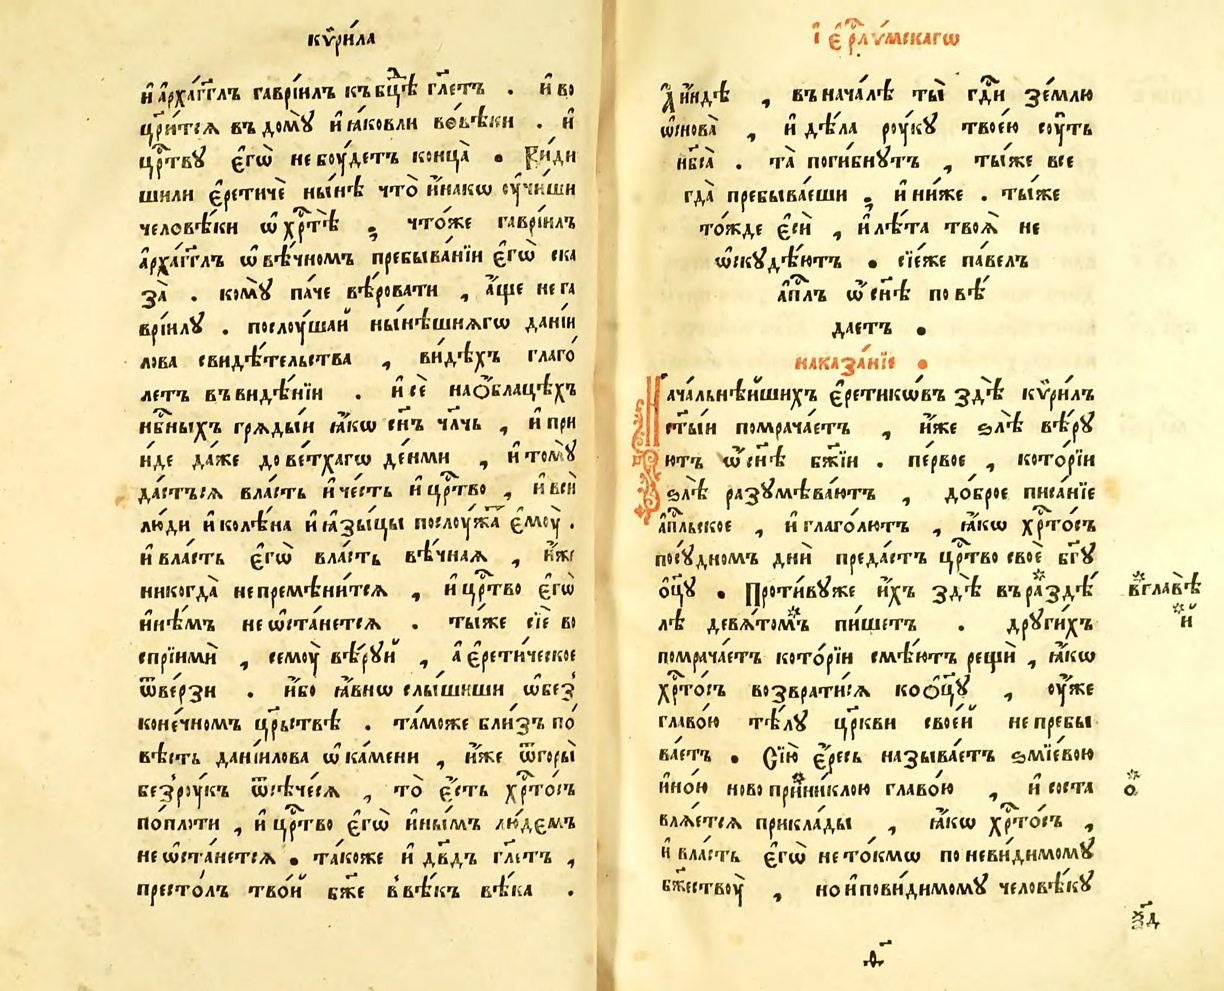 кѷри́ла
и҆ а҆рха́гг҃лъ гаврїи́лъ къ бц҃ѣ гл҃етъ . и҆ во
цр҃и́тсѧ въ домꙋ̀ и҆ ꙗ҆́ковли во вѣ́ки . и҆
црⷭ҇твꙋ є҆гѡ̀ не бꙋ́детъ конца̀ . Ви́ди
ши ли є҆ретичѐ ны́нѣ что̀ и҆на́кѡ оу҆чи́ши
человѣ́ки ѡ҆ хрⷭ҇тѣ̀ ; что́же гаврїи́лъ
а҆рха́гг҃лъ ѡ҆ вѣ́чномъ пребыва́нїи є҆гѡ̀ ска
за̀ . комꙋ̀ па́че вѣ́ровати , а҆́ще не га
врїи́лꙋ . послꙋ́шай ны́нѣшнѧгѡ данїи
лова свидѣ́тельства , ви́дѣхъ глаго́
летъ въ видѣ́нїи . и҆ сѐ на ѻ҆́блацѣхъ
нбⷭ҇ныхъ грѧды́й ꙗ҆́кѡ сн҃ъ чл҃чь , и҆ при
и́де да́же до ве́тхагѡ де́нми , и҆ томꙋ̀
да́стьсѧ вла́сть и҆ че́сть и҆ црⷭ҇тво , и҆ всѝ
лю́ди и҆ колѣ́на и҆ ꙗ҆зы́цы послꙋ́жа҆т є҆мꙋ̀ .
и҆ вла́сть є҆гѡ̀ вла́сть вѣ́чнаѧ , и҆́же
никогда̀ не премѣни́тсѧ , и҆ црⷭ҇тво є҆гѡ̀
и҆нѣ́мъ не ѡ҆ста́нетсѧ . ты́же сїѐ во
спрїимѝ , семꙋ̀ вѣ́рꙋй , а҆ є҆рети́ческое
ѿве́рзи . и҆́бо ꙗ҆́внѡ слы́шиши ѡ҆ без̾
коне́чномъ црⷭ҇ьствѣ . та́може бли́зъ по́
вѣсть данїи́лова ѡ҆ ка́мени , и҆́же ѿ горы̀
без̾ рꙋ́къ ѿсѣче́сѧ , то̀ є҆́сть хрⷭ҇то́съ
по пло́ти , и҆ црⷭ҇тво є҆гѡ̀ и҆ны́мъ лю́демъ
не ѡ҆ста́нетсѧ . та́коже и҆ дв҃дъ гл҃етъ ,
престо́лъ тво́й бж҃е в̾ вѣ́къ вѣ́ка .
і҆ є҆рⷭ҇лѵ́мскагѡ
А҆ и҆́ндѣ , въ нача́лѣ ты̀ гдⷭ҇и зе́млю
ѡ҆снова̀ , и҆ дѣ́ла рꙋ́кꙋ твоє́ю сꙋ́ть
нб҃са̀ . та̀ поги́бнꙋтъ , ты́же все
гда̀ пребыва́еши ; и҆ ни́же . ты́же
то́жде є҆сѝ , и҆ лѣ́та твоѧ̀ не
ѡ҆скꙋдѣ́ютъ . сїе́же па́велъ
а҆пⷭ҇лъ ѡ҆ сн҃ѣ по вѣ́
даетъ .
наказа́нїе .
Нача́льнѣйшихъ є҆ретикѡ́въ здѣ̀ кѷри́лъ
ст҃ы́й помрача́етъ , и҆́же ѕлѣ̀ вѣ́рꙋ
ютъ ѡ҆ сн҃ѣ бж҃їи . пе́рвое , кото́рїи
ѕлѣ̀ разꙋмѣва́ютъ , до́брое писа́нїе
а҆пⷭ҇льское , и҆ глаго́лютъ , ꙗ҆́кѡ хрⷭ҇то́съ
по сꙋ́дномъ днѝ преда́стъ црⷭ҇тво своѐ бг҃ꙋ
ѻ҆ц҃ꙋ̀ . Проти́вꙋже и҆́хъ здѣ̀ въ ра*здѣ́
лѣ девѧ́том*ъ пи́шетъ . дрꙋги́хъ
помрача́етъ кото́рїи смѣ́ютъ рещѝ , ꙗ҆́кѡ
хрⷭ҇то́съ возврати́сѧ ко ѻ҆ц҃ꙋ̀ , оу҆́же
главо́ю тѣ́лꙋ цр҃кви свое́й не пребы
ва́етъ . Сїю̀ є҆́ресь называ́етъ ѕмїе́вою
и҆но́ю ново при*ни́клою главо́ю , и҆ соста
влѧ́етсѧ прикла́ды , ꙗ҆́кѡ хрⷭ҇то́съ ,
и҆ вла́сть є҆гѡ̀ не то́кмѡ по неви́димомꙋ
бж҃ествꙋ̀ , но и҆ по ви́димомꙋ человѣ́кꙋ
* в̾ главѣ̀
* и҃
* ѻ
з҃д
д҃